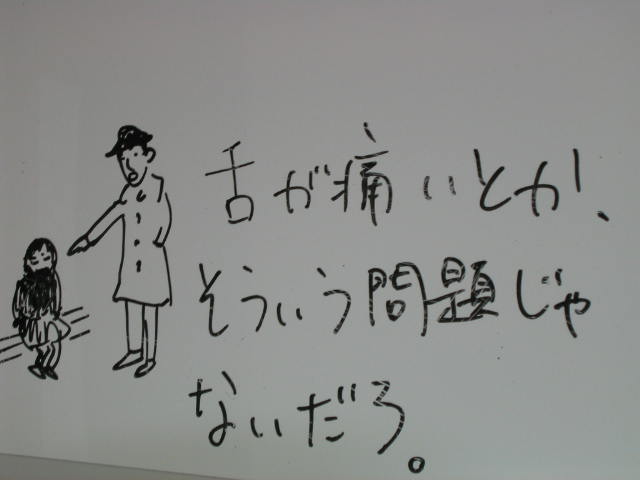 舌が痛いとか、
そういう問題じゃ
ないだろ。